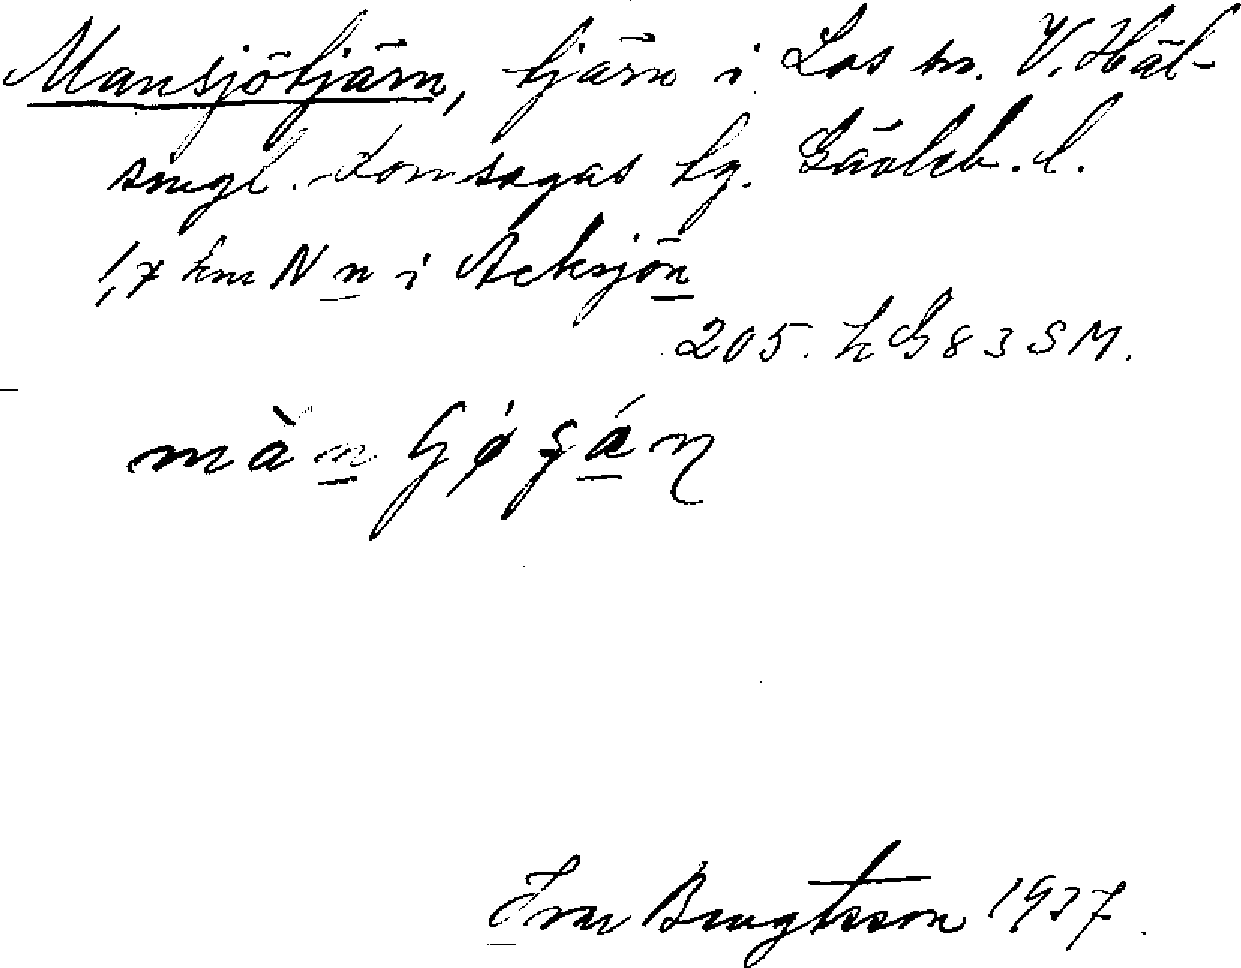 Mansjötjärn, tjärn i Los sn. V. Häl-
singl. domsagas tg. Gävleb. l.
1,7 km N n i Acksjön
205. h G 83 SM.
Ivar Bengtsson 1937.